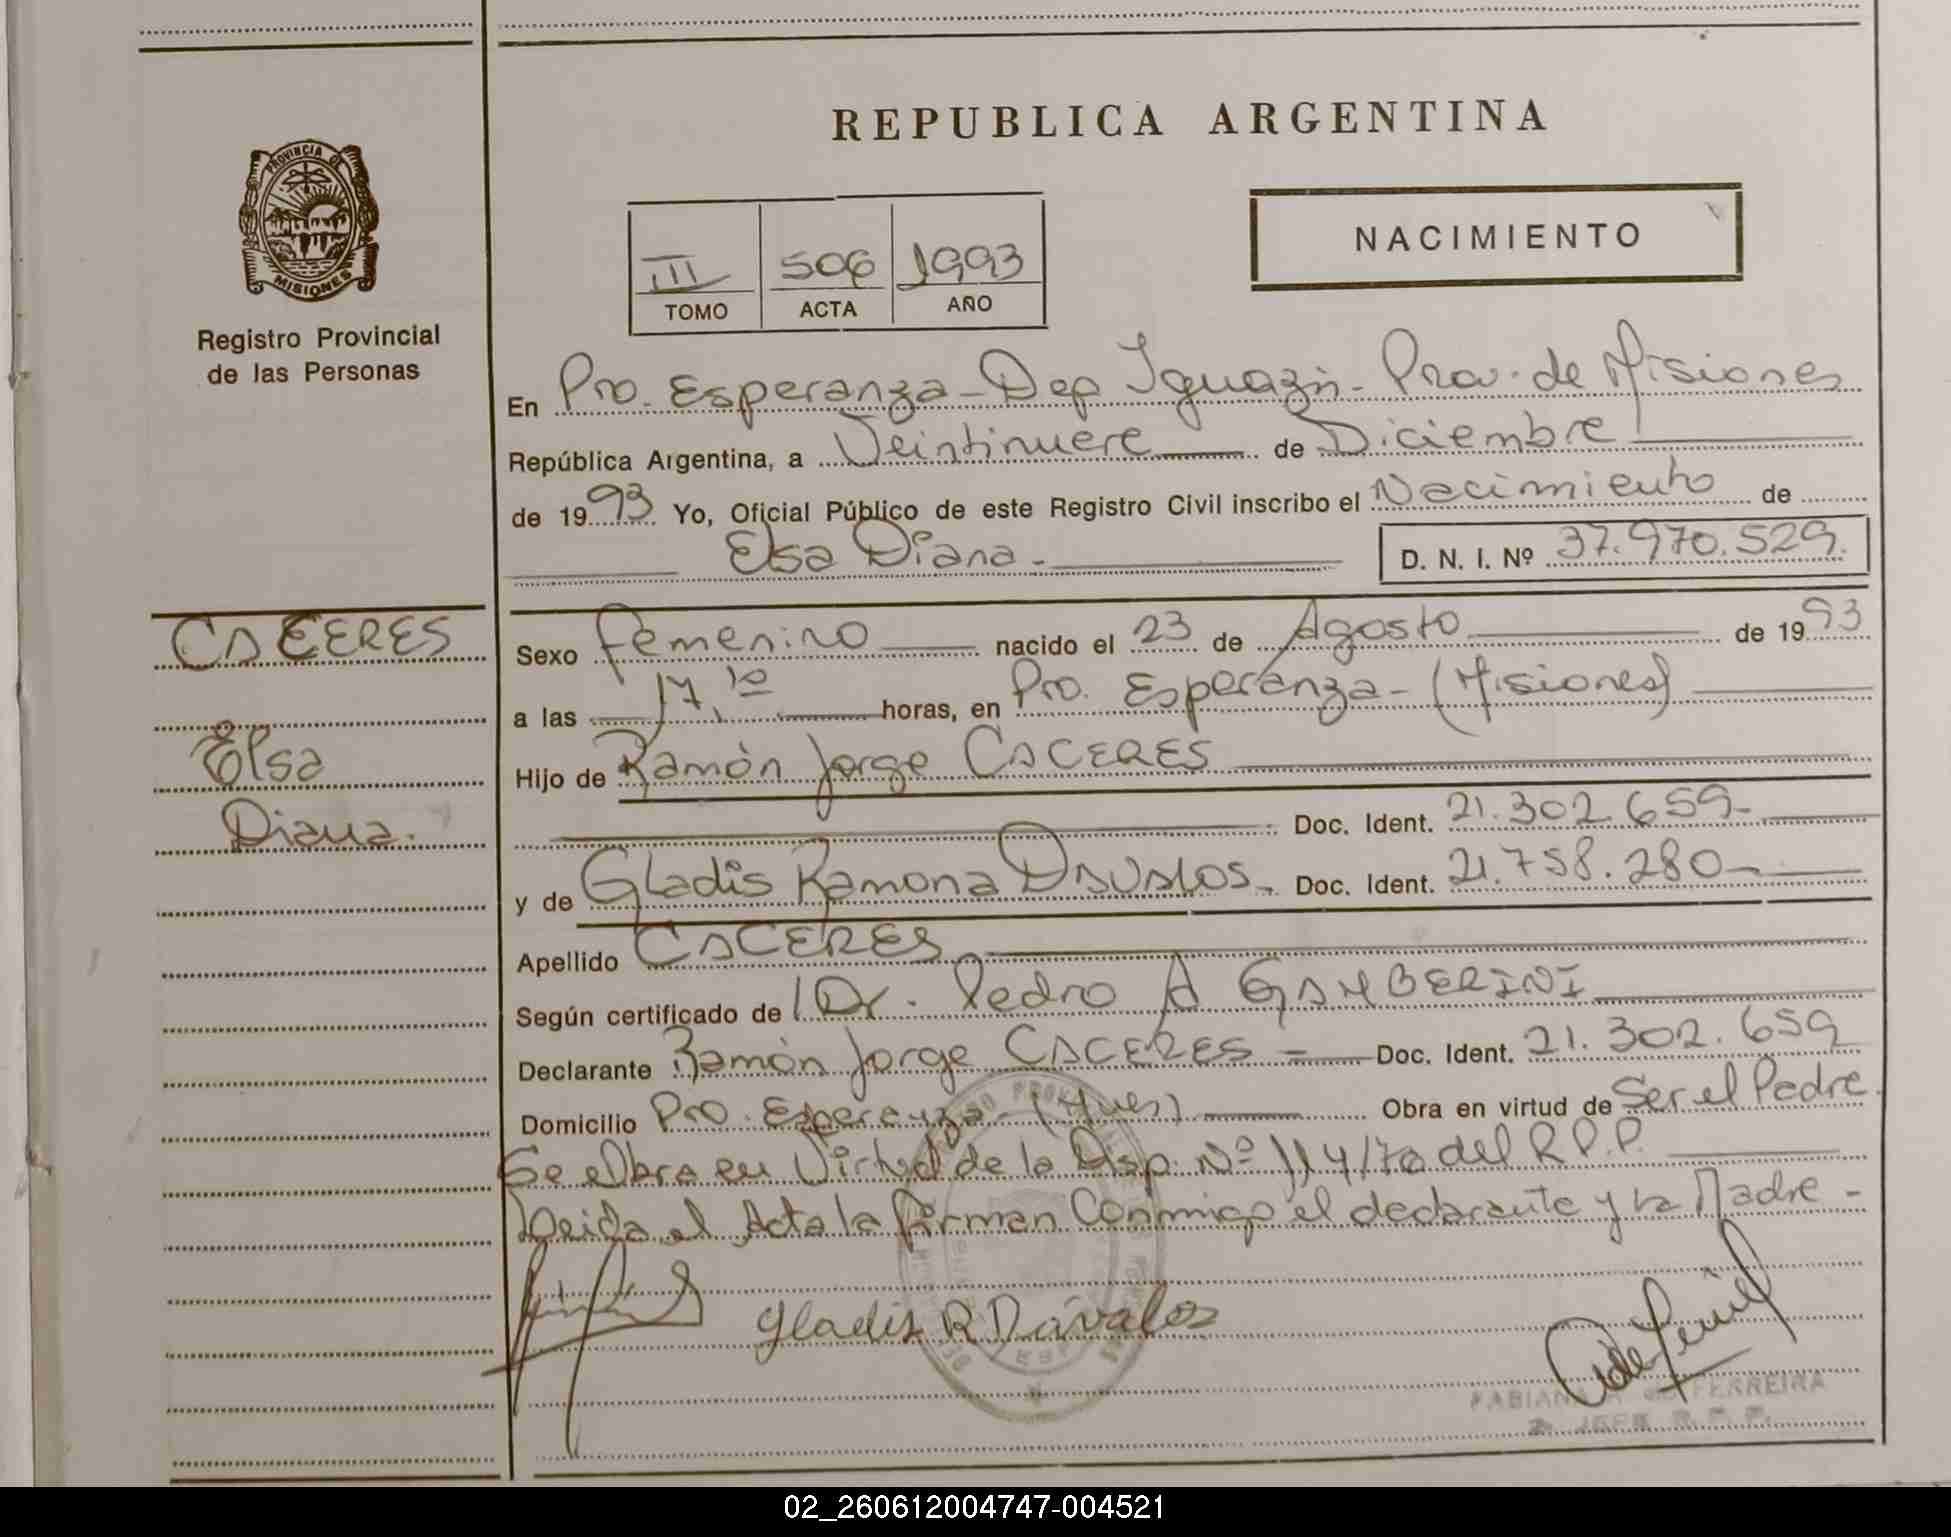 REPUBLICA ARGENTINA
PROVINCIA DE
MISIONES
Registro Provincial
de las Personas
III 506 1993
TOMO ACTA AÑO
NACIMIENTO
En Pto. Esperanza - Dep Iguazú - Prov. de Misiones
República Argentina, a Veintinueve de Diciembre
de 1993 Yo, Oficial Público de este Registro Civil inscribo el Nacimiento de
Elsa Diana - D. N. I. Nº 37.970.529.
CACERES
Elsa
Diana.
Sexo femenino nacido el 23 de Agosto de 1993
a las 17,10 horas, en Pto. Esperanza - (Misiones)
Hijo de Ramón Jorge CACERES
Doc. Ident. 21.302.659-
y de Gladis Ramona DAVALOS - Doc. Ident. 21.758.280-
Apellido CACERES
Según certificado de Dr. Pedro A GAMBERINI
Declarante Ramón Jorge CACERES = Doc. Ident. 21.302.659
Domicilio Pto. Esperanza - (Mnes) Obra en virtud de Ser el Padre.
Se Labra en Virtud de la Disp. Nº 114/70 del R.P.P.
Leida el Acta la firman Conmigo el declarante y la Madre -
Gladis R Dávalos
FERREIRA
JEFE R. P. P.
02_260612004747-004521